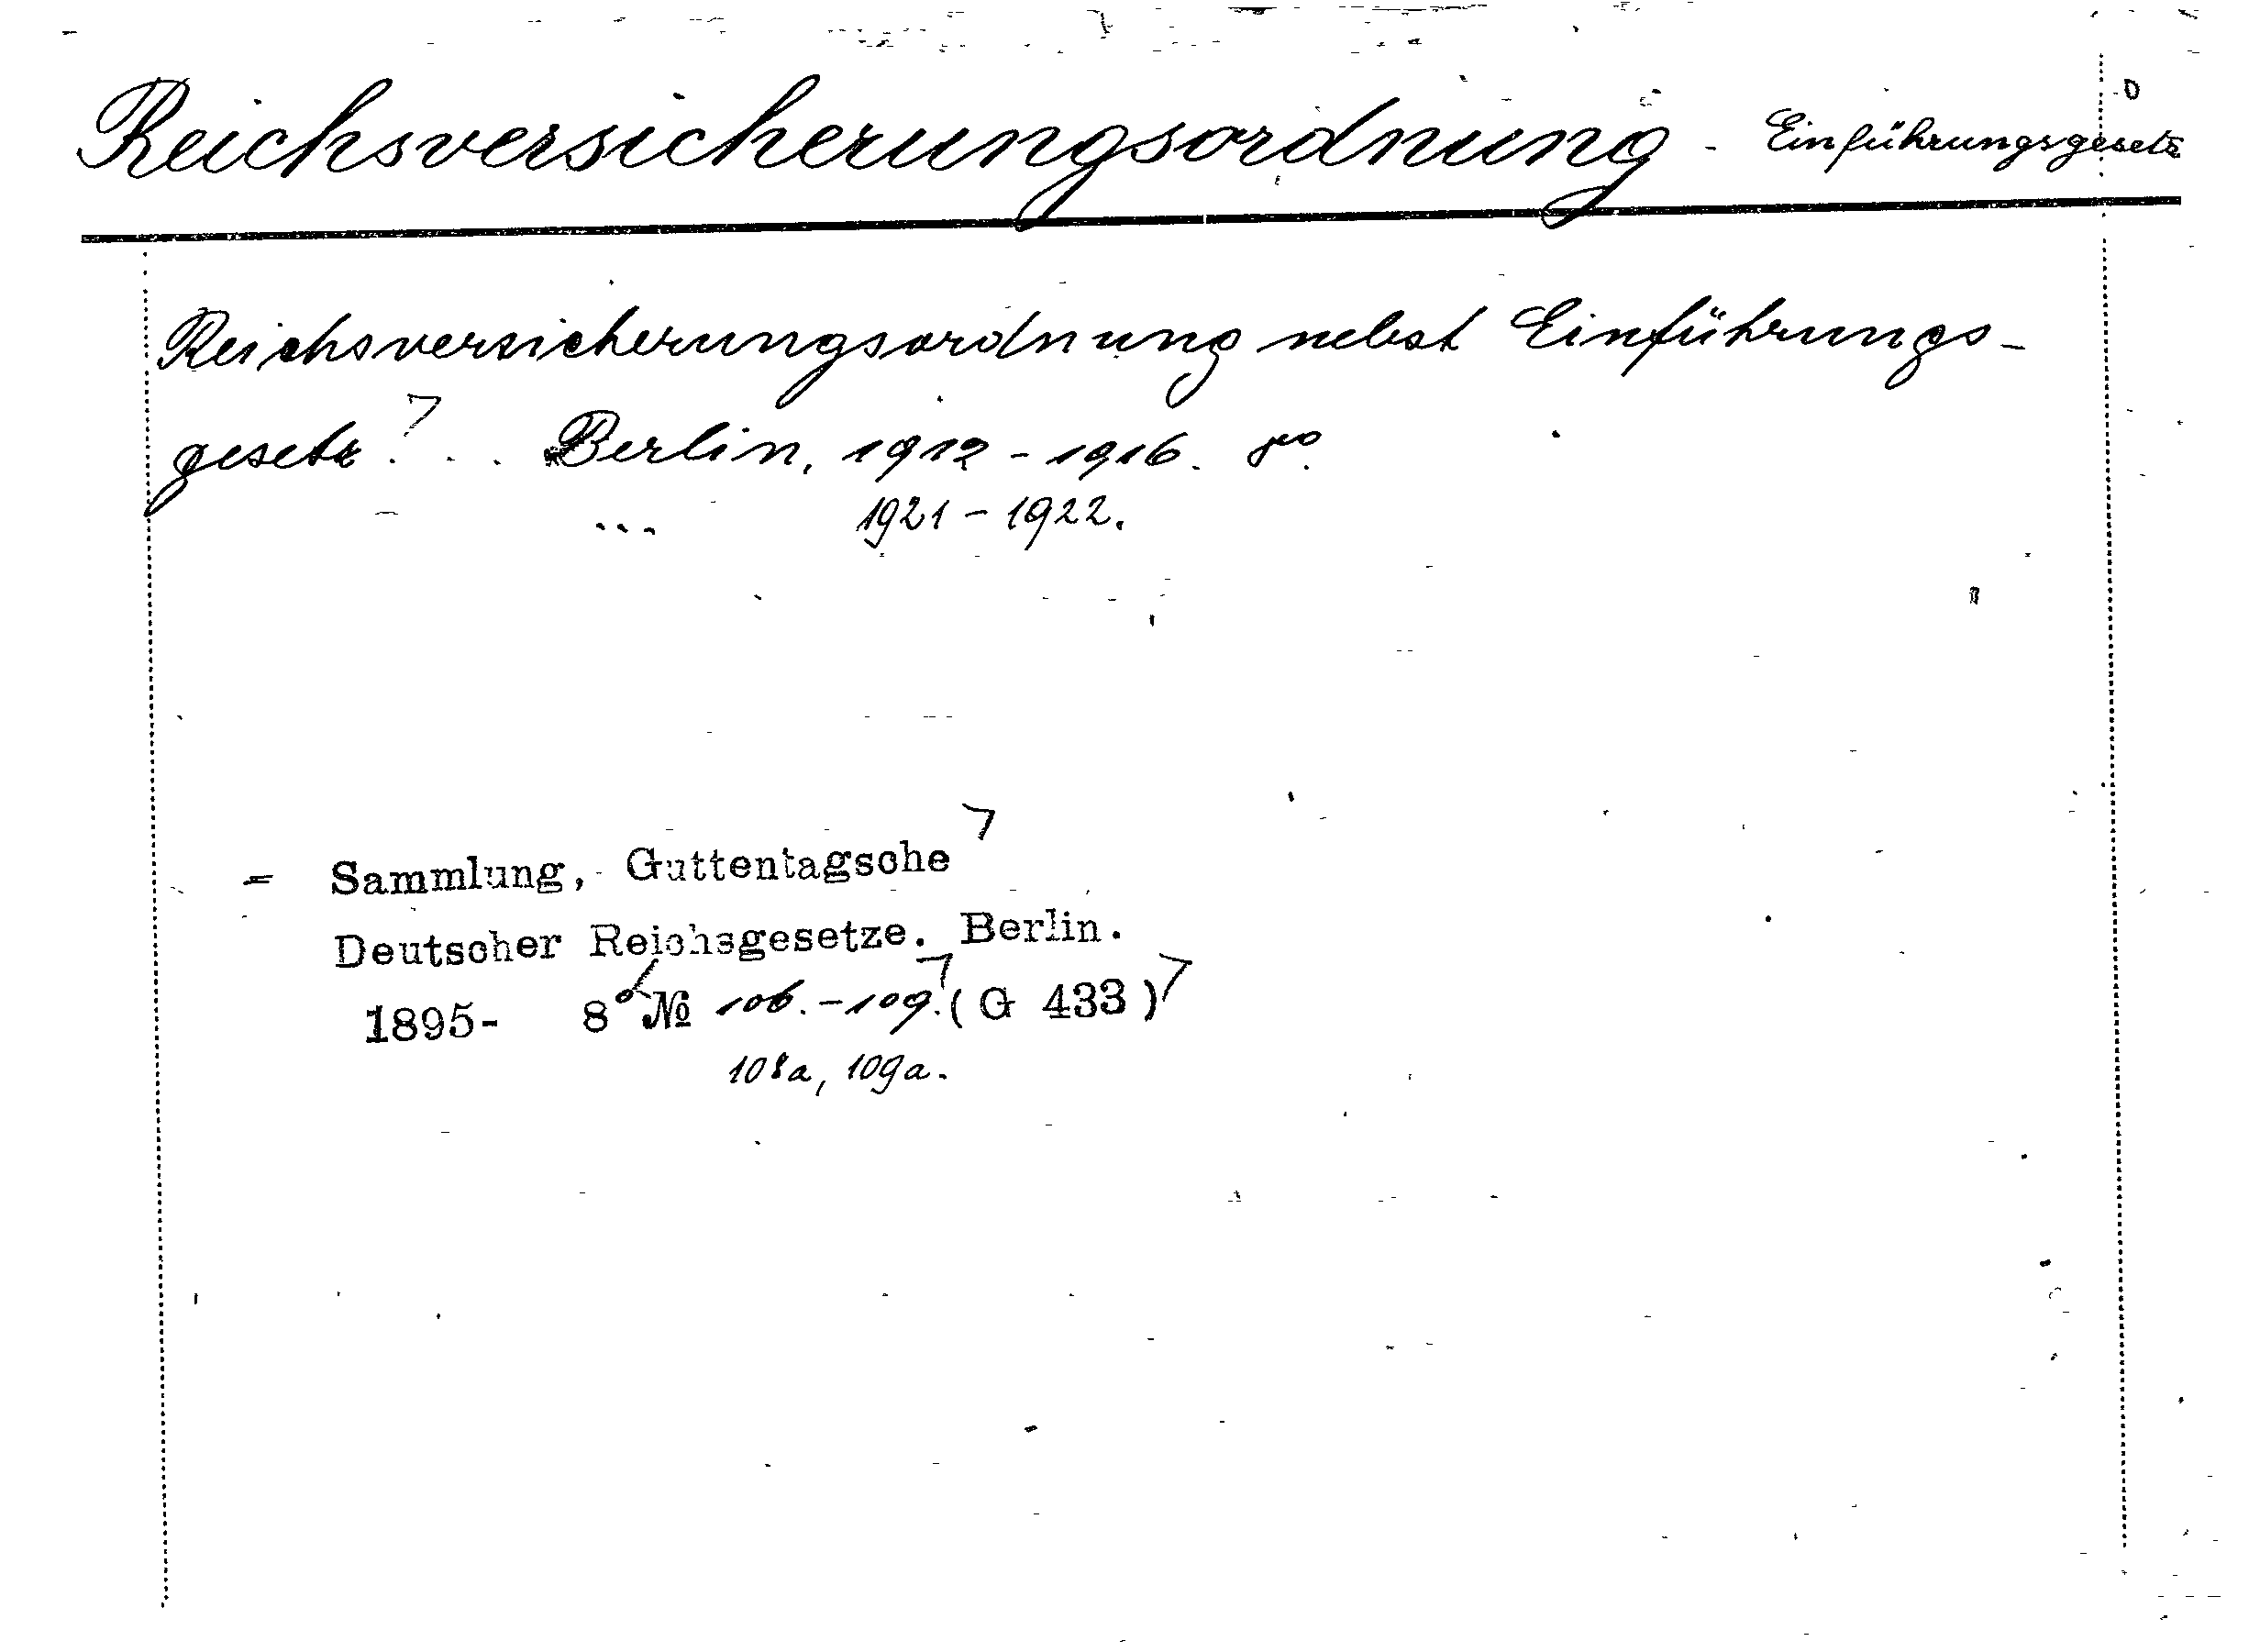 Reichsversicherungsordnung - Einführungsgesetz
Reichsversicherungsordnung nebst Einführungs-
gesetz. . . Berlin, 1912 - 1916. 8vo.
... 1921 - 1922.
= Sammlung, Guttentagsche
Deutscher Reichsgesetze. Berlin.
1895- 8° № 106. - 109. (G 433)
108a, 109a.